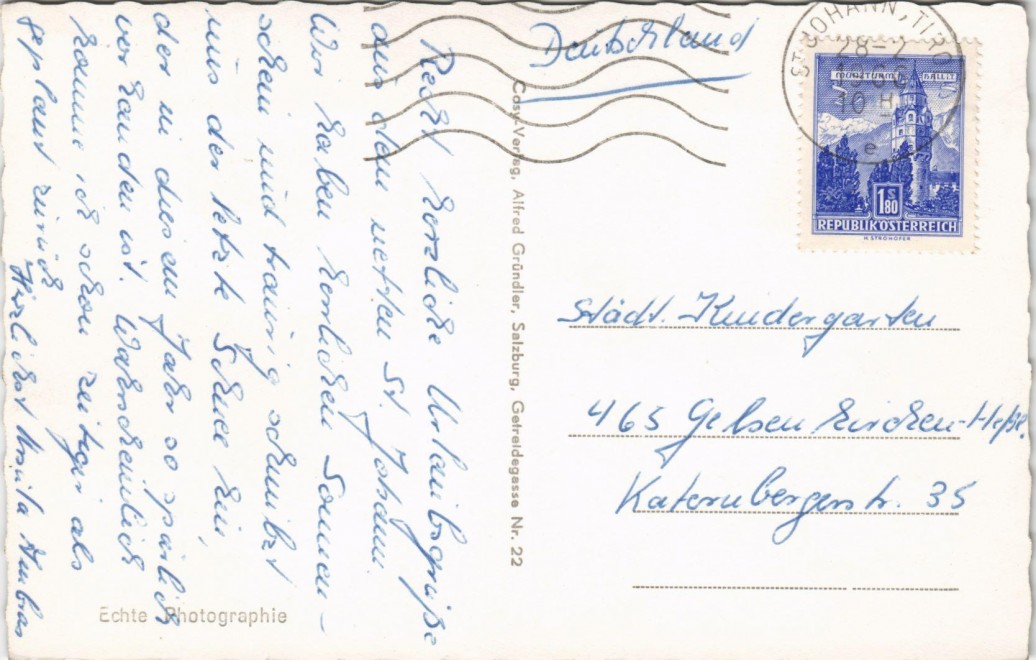 Recht herzliche Urlaubsgrüße
aus dem netten St. Johann.
Wir haben herrlichen Sonnen-
schein und traurig schmilzt
uns der letzte Schnee hin,
der in diesem Jahr so spärlich
vorhanden ist. Wahrscheinlich
komme ich schon zeitiger als
geplant zurück
Herzlichst Ursula
Echte Photographie
Cosy-Verlag, Alfred Gründler, Salzburg, Getreidegasse Nr. 22
Deutschland
ST. JOHANN, TIROL
28-2
1966
10 H
e
MÜNZTURM HALL I. T.
1 S 80
REPUBLIK ÖSTERREICH
H. STROHOFER
Städt. Kindergarten
465 Gelsenkirchen-Heßl.
Katernbergerstr. 35